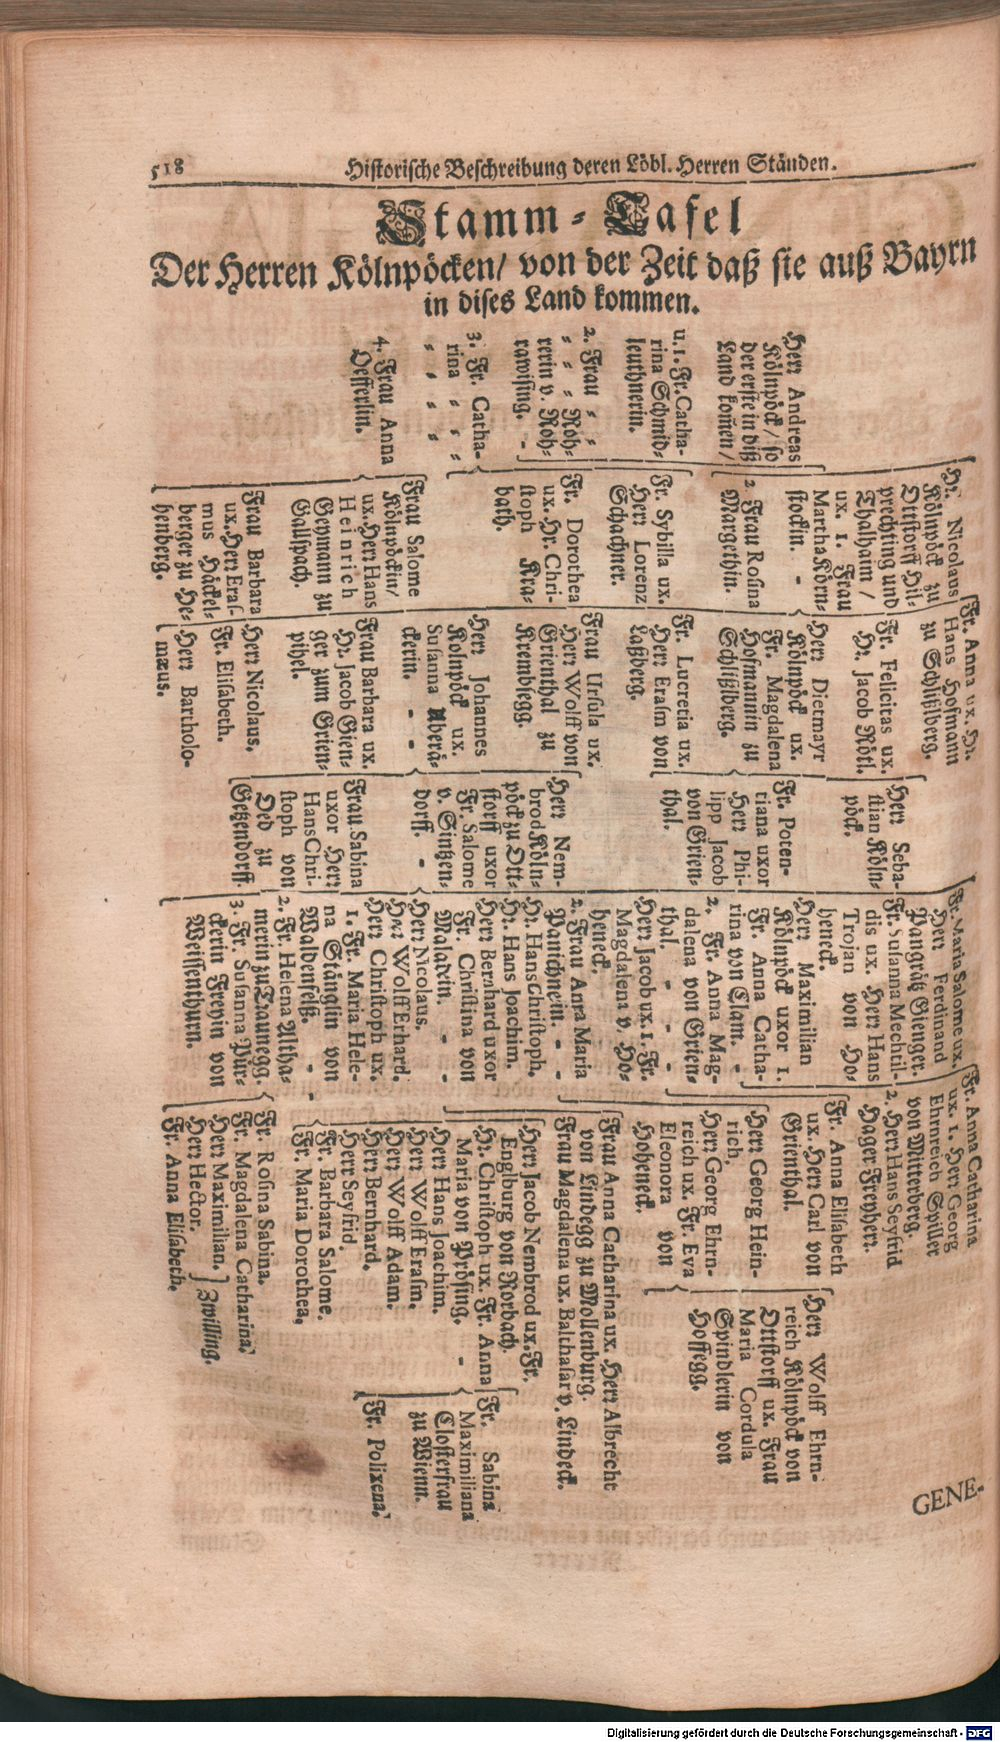 518
Historische Beschreibung deren Löbl. Herren Ständen.
Stamm-Tafel
Der Herren Kölnpöcken/ von der Zeit daß sie auß Bayrn
in dises Land kommen.
Herr Andreas
Kölnpöck/ so
der erste in diß
Land kom̃en/
u. 1. Fr. Catha-
rina Schmid-
leuthnerin.
2. Frau - -
- - - Roh-
rerin v. Roh-
rawising. -
3. Fr. Catha-
rina - - -
- - - -
4. Frau Anna
Oefferlin.
Hr. Nicolaus
Kölnpöck zu
Ottstorff Hil-
prechting und
Thalhaim/
ux. 1. Frau
Martha Körn-
stockin. -
2. Frau Rosina
Margethin.
Fr. Sybilla ux.
Herr Lorenz
Schachner.
Fr. Dorothea
ux. Hr. Chri-
stoph Kra-
bath.
Frau Salome
Kölnpöckin/
ux. Herr Hans
Heinrich
Geymann zu
Gallspach.
Frau Barbara
ux. Herr Eras-
mus Häckel-
berger zu He-
henberg.
Fr. Anna ux. Hr.
Hans Hofmann
zu Schlißlberg.
Fr. Felicitas ux.
Hr. Jacob Rötl.
Herr Dietmayr
Kölnpöck ux.
Fr. Magdalena
Hofmannin zu
Schlißlberg.
Fr. Lucretia ux.
Herr Erasm von
Laßberg.
Frau Ursula ux.
Herr Wolff von
Grienthal zu
Kremblegg.
Herr Johannes
Kölnpöck ux.
Susanna Aberä-
ckerin. - -
Frau Barbara ux.
Hr. Jacob Gien-
ger zum Grien-
pihel.
Herr Nicolaus.
Fr. Elisabeth.
Herr Bartholo-
mæus.
Herr Seba-
stian Köln-
pöck.
Fr. Poten-
tiana uxor
Herr Phi-
lipp Jacob
von Grien-
thal.
Herr Nem-
brod Köln-
pöck zu Ott-
storff uxor
Fr. Salome
v. Sintzen-
dorff. -
Frau Sabina
uxor Herr
Hans Chri-
stoph von
Oed zu
Getzendorff.
Fr. Maria Salome ux.
Herr Ferdinand
Pangrätz Gienger.
Fr. Susanna Mechtil-
dis ux. Herr Hans
Trojan von Ho-
heneck.
Herr Maximilian
Kölnpöck uxor 1.
Fr. Anna Catha-
rina von Clam. -
2. Fr. Anna Mag-
dalena von Grien-
thal. - - -
Herr Jacob ux. 1. Fr.
Magdalena v. Ho-
heneck.
2. Frau Anna Maria
Panichnerin. - -
Hr. Hans Christoph.
Hr. Hans Joachim.
Herr Bernhard uxor
Fr. Christina von
Maltzein. - -
Herr Nicolaus.
Herr Wolff Erhard.
Herr Christoph ux.
1. Fr. Maria Hele-
na Stänglin von
Waldenfelß. -
2. Fr. Helena Altha-
merin zu Traunegg.
3. Fr. Susanna Pür-
ckerin Freyin von
Weissenthurn.
Fr. Anna Catharina
ux. 1. Herr Georg
Ehrnreich Spiller
von Mitterberg.
2. Herr Hans Seyfrid
Hager Freyherr.
Fr. Anna Elisabeth
ux. Herr Carl von
Grienthal.
Herr Georg Hein-
rich.
Herr Georg Ehrn-
reich ux. Fr. Eva
Eleonora von
Hoheneck.
Frau Anna Catharina ux. Herr Albrecht
von Lindegg zu Mollenburg.
Frau Magdalena ux. Balthasar v. Lindeck.
Herr Jacob Nembrod ux. Fr.
Englburg von Rorbach.
Hr. Christoph ux. Fr. Anna
Maria von Prösing. -
Herr Hans Joachim.
Herr Wolff Erasm.
Herr Wolff Adam.
Herr Bernhard.
Herr Seyfrid.
Fr. Barbara Salome.
Fr. Maria Dorothea.
Fr. Rosina Sabina.
Fr. Magdalena Catharina.
Herr Maximilian.
Herr Hector.
Zwilling.
Fr. Anna Elisabeth.
Herr Wolff Ehrn-
reich Kölnpöck von
Ottstorff ux. Frau
Maria Cordula
Spindlerin von
Hoffegg.
Fr. Sabina
Maximiliana
Closterfrau
zu Wienn.
Fr. Polixena.
GENE-
Digitalisierung gefördert durch die Deutsche Forschungsgemeinschaft - DFG